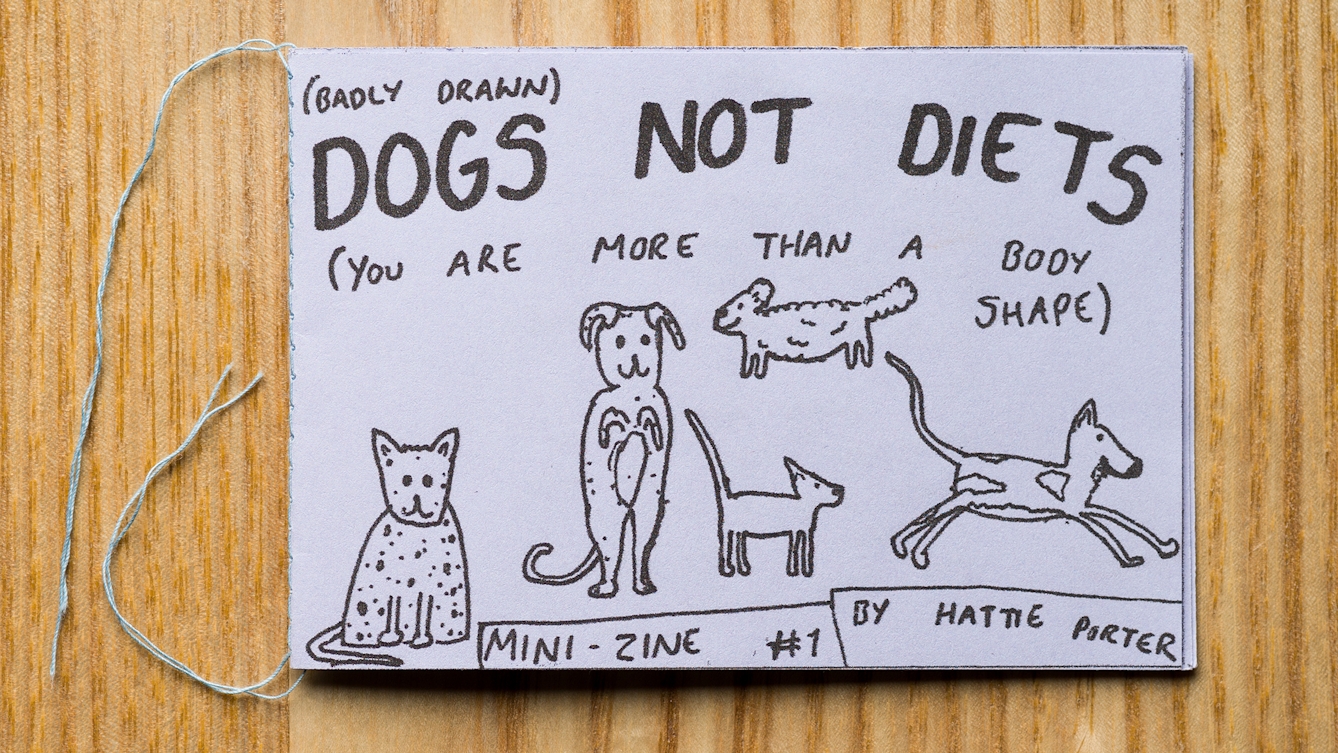 (BADLY DRAWN)
DOGS NOT DIETS
(YOU ARE MORE THAN A BODY
SHAPE)
MINI-ZINE #1
BY HATTIE PORTER